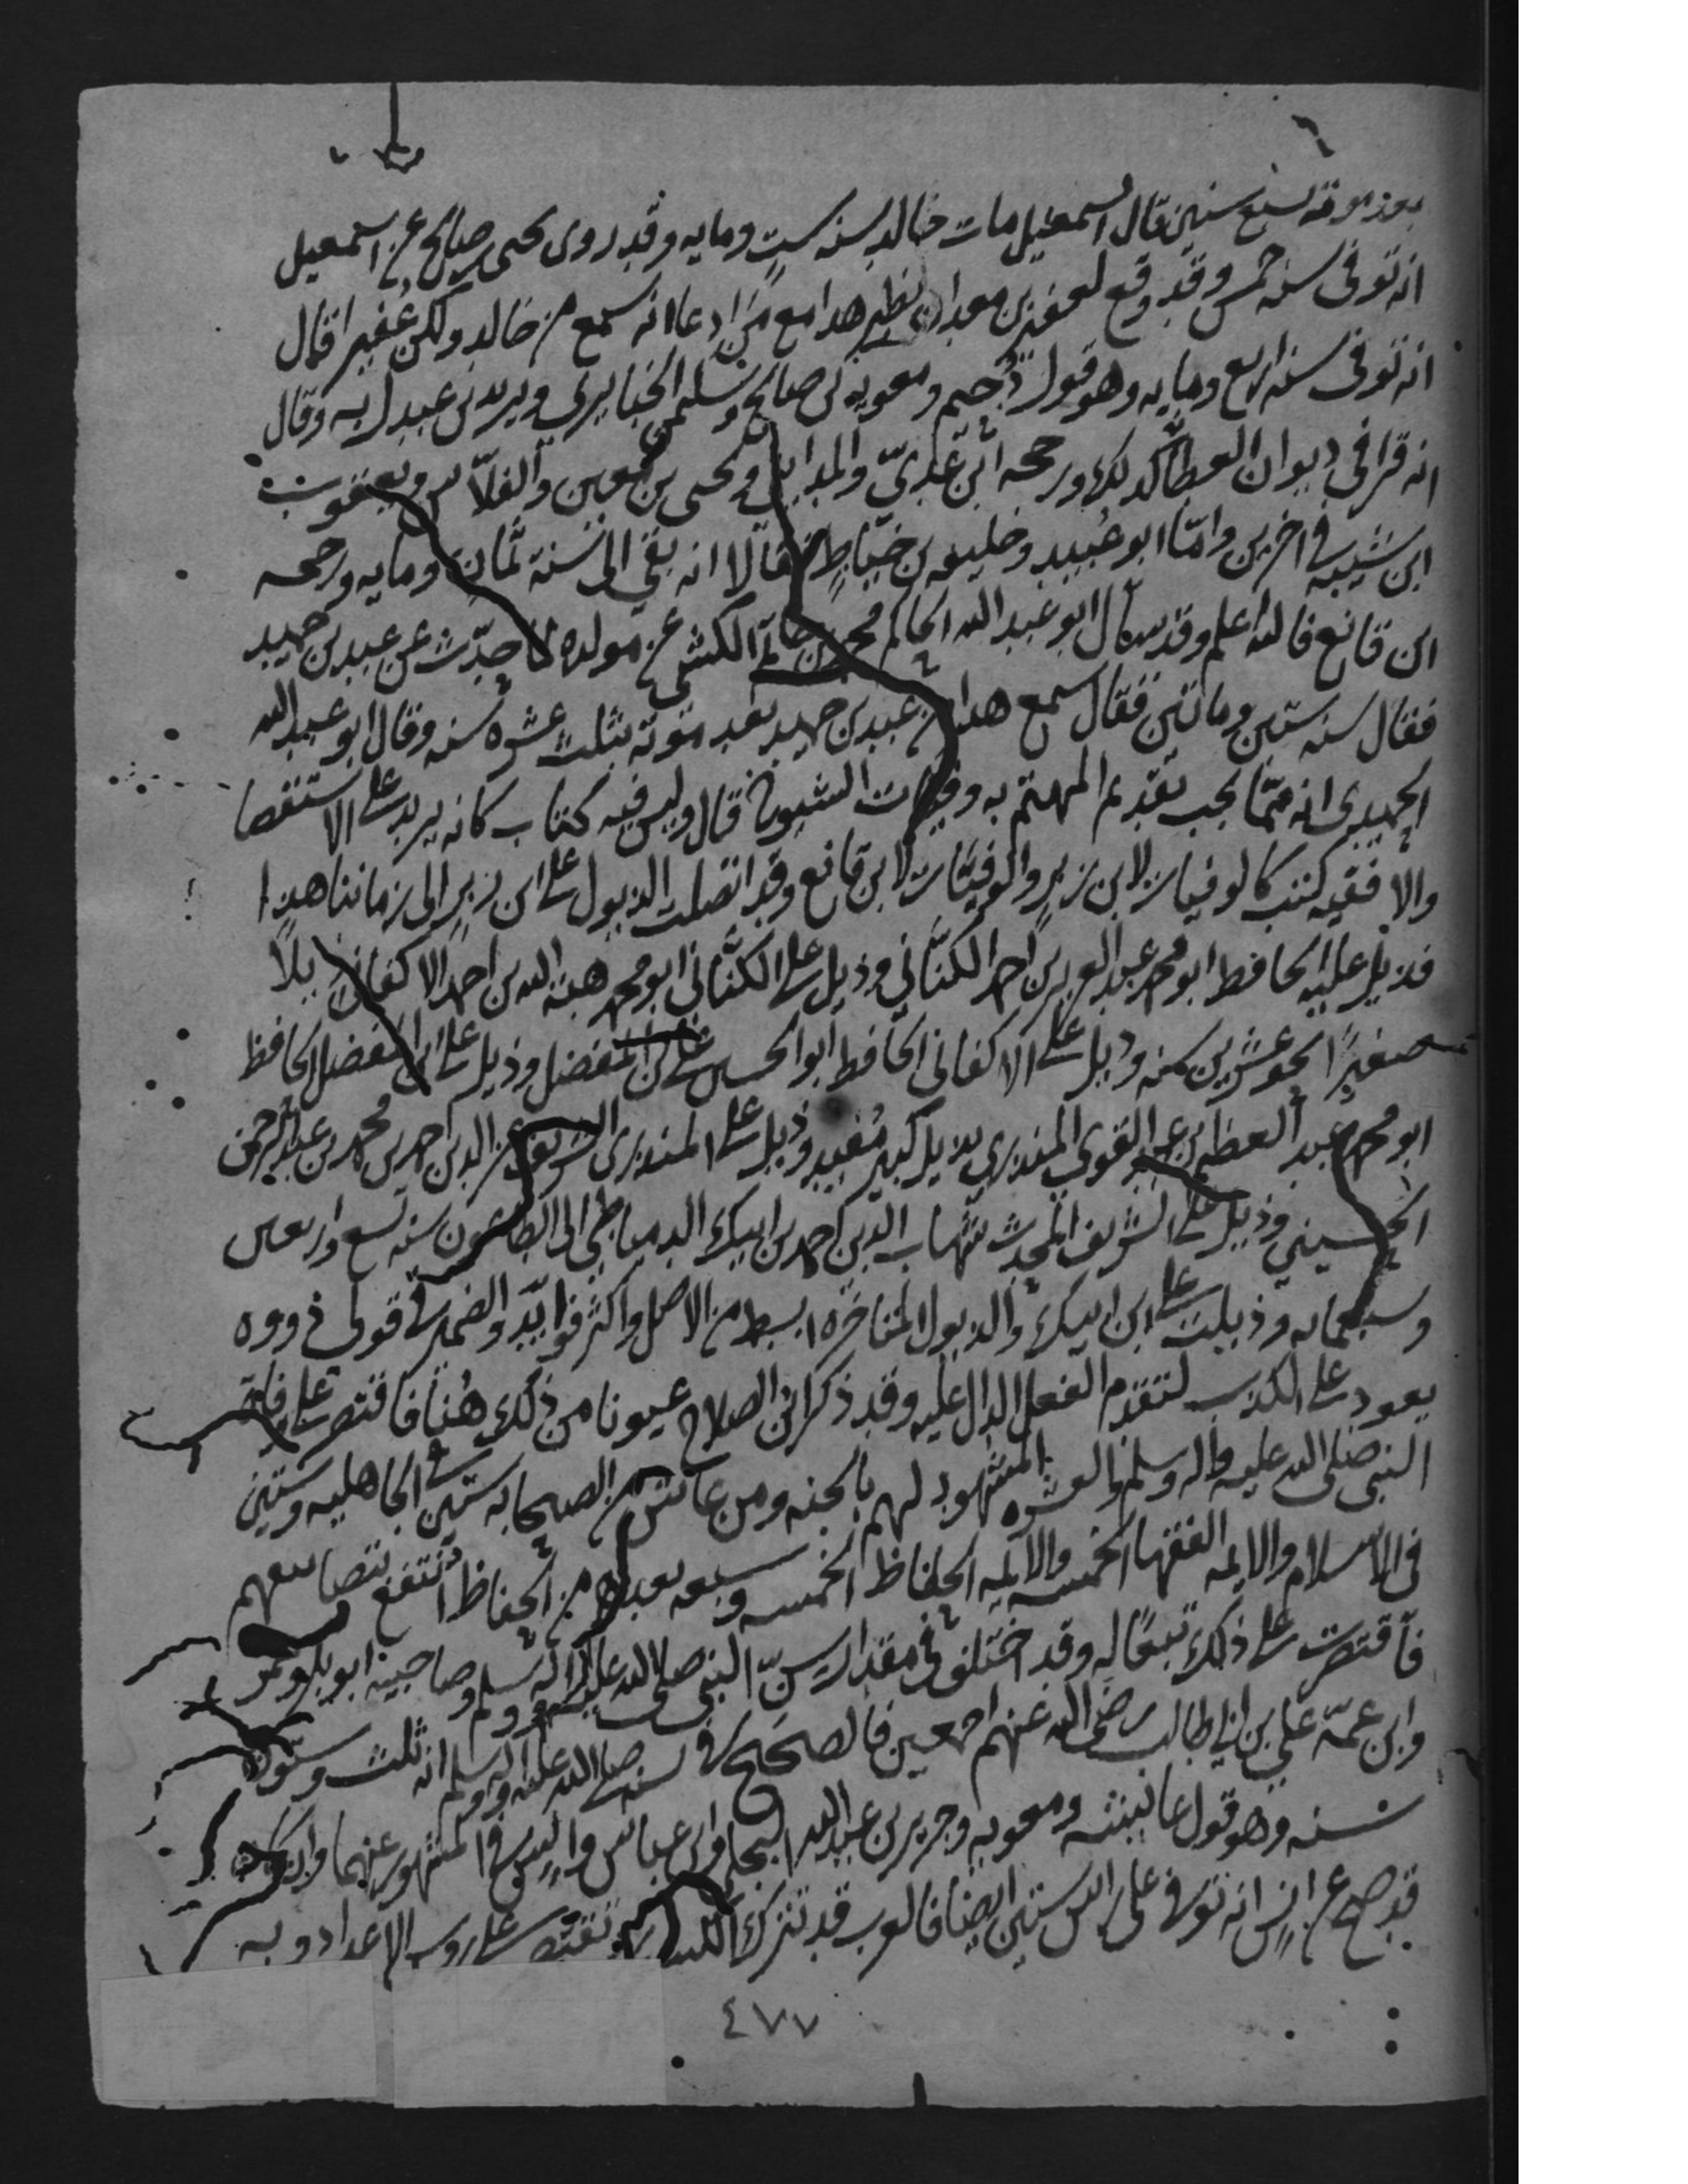 بعد موته بسبع سنين قال اسمعيل مات خالد سنه ست ومايه وقد روى يحيى بن صالح عن اسمعيل
انه توفى سنه خمس وقد وقع لعفير بن معدان نظير هدا مع من ادعا انه سمع من خالد ولكن عفيرا قال
انه توفى سنه اربع ومايه وهو قول دُحيم ومعويه بن صالح وسليمن الخبايري ويزيد بن عبد ربه وقال
انه قرا في ديوان العطا كدلك ورجحه ابن عديّ والمدايني ويحيى بن معين والفلّاس ويعقوب
ابن شيبه في اخرين وامّا ابو عُبيد وخليفه بن خيّاط فقالا انه بقي الى سنة ثمان ومايه ورجحه
ابن قانع فالله اعلم وقد سأل ابو عبد الله الحاكم محمد بن حاتم الكشي عن مولده لما حدّث عن عبد بن حميد
فقال سنه ستين وماتين فقال سمع هدا من عبد بن حميد بعد موته بثلث عشره سنه وقال ابو عبد الله
الحميدى انه ممّا يجب تقديم المهتم به وفيات الشيوخ قال وليس فيه كتاب كانه يريد على الاستقصا
والا ففيه كتب كالوفيات لابن زبر والوفيات لابن قانع وقد اتصلت الذيول على ابن زبر الى زماننا هدا
فذيل عليه الحافط ابو محمد عبد العزيز بن احمد الكتّاني وذيل على الكتّاني ابو محمد هبة الله بن احمد الاكفاني ذيلًا
صغيرًا نحو عشرين سنه وذيل على الاكفانى الحافط ابو الحسن على بن المفضل وذيل على ابن المفضل الحافظ
ابو محمد عبد العظيم بن عبد القوى المنذري بذيل كبير مُفيد وذيل على المنذرى الشريف عز الدين احمد بن محمد بن عبد الرحمن
الحسيني وذيل على الشريف المحدث شهاب الدين احمد بن ايبك الدمياطي الى الطاعون سنه تسع واربعين
وسبعمايه وذيلت على ابن ايبك والذيول المتاخره ابسط من الاصل واكثر فوايد والضمير في قولى ذووه
يعود على الكذب لتقدم الفعل الدال عليه وقد ذكر ابن الصلاح عيونا من ذلك هُنا فاقتصر على وفاة
النبى صلى الله عليه واله وسلم والعشره المشهود لهم بالجنه ومن عاش من الصحابه ستين في الجاهليه وستين
في الاسلام والايمه الفقها الخمسه والايمه الحفاظ الخمسه وسبعه بعدهم من الحفاظ انتفع بتصانيفهم
فاقتصرت على ذلك تبعًا له وقد اختلف في مقدار سنّ النبى صلى الله عليه واله وسلم وصاحبيه ابو بكر وعمر
وابن عمّه على بن ابي طالب رضى الله عنهم اجمعين فالصحيح في سنه صلى الله عليه واله وسلم انه ثلث وستون
سنه وهو قول عايشه ومعويه وجرير بن عبد الله البجلي وابن عباس وانس في المشهور عنهما وان كان
قد صح عن انس انه توفي على راس ستين ايضا فالعرب قد تترك الكسر وتقتصر على روس الاعداد وبه
٤٧٧